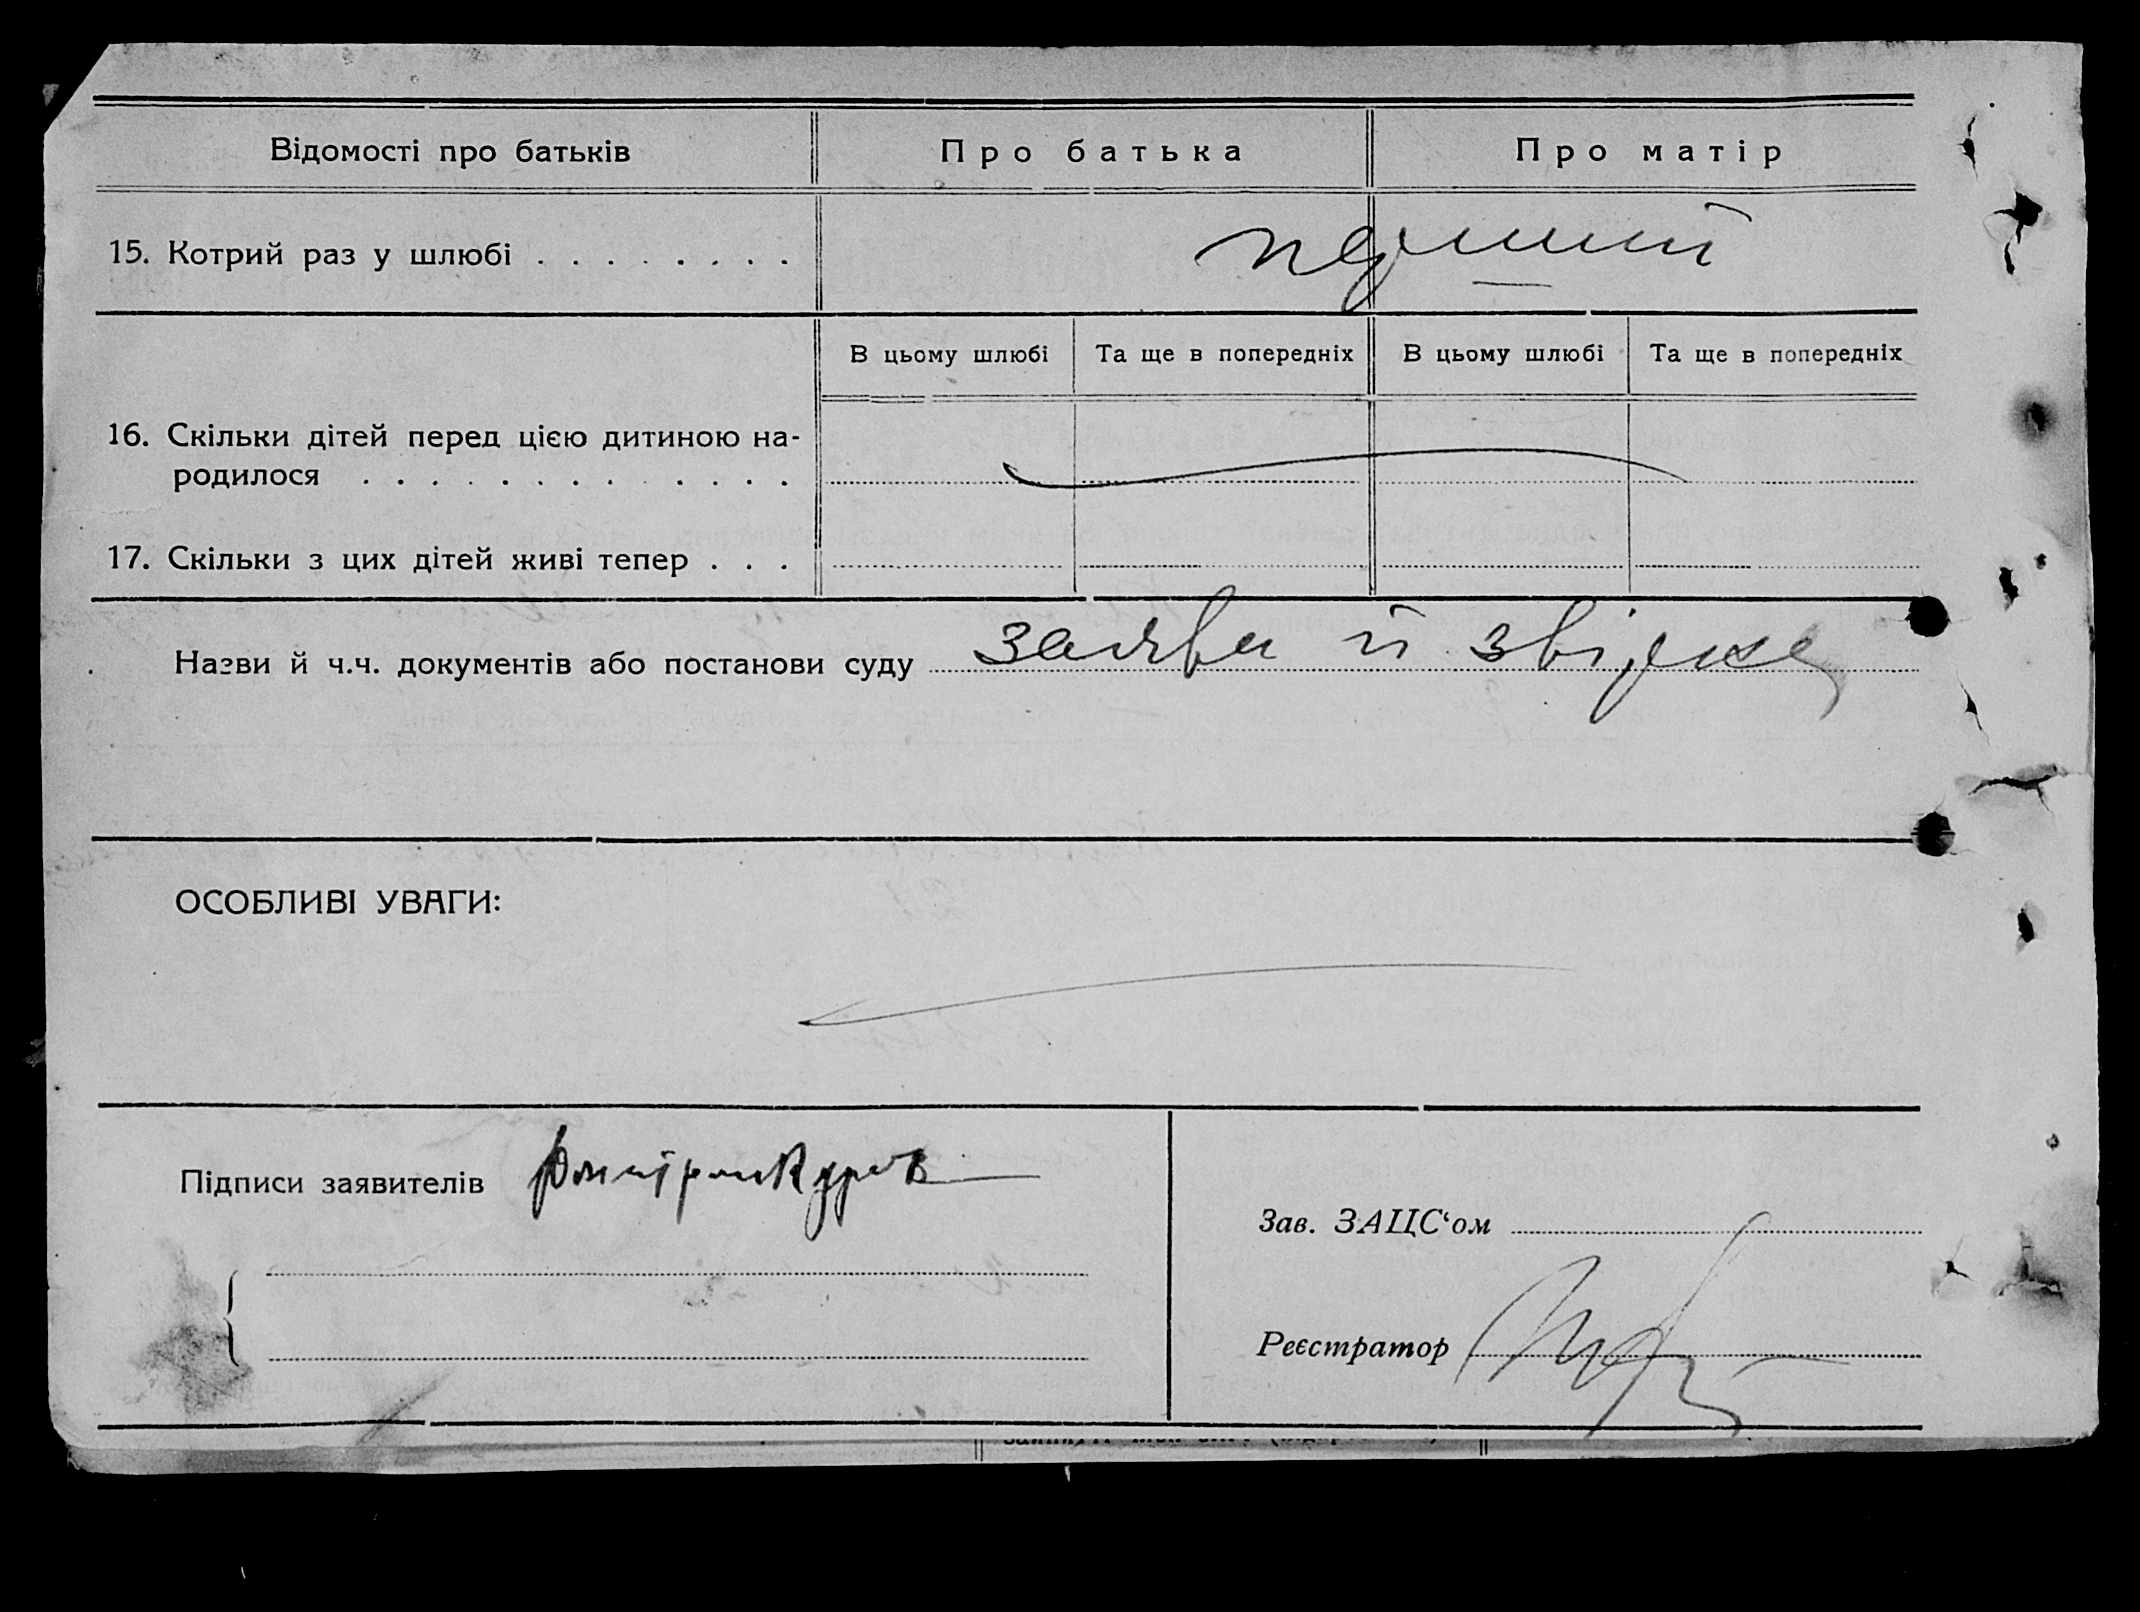 Відомості про батьків Про батька Про матір
15. Котрий раз у шлюбі . . . . . . . . перший
В цьому шлюбі Та ще в попередніх В цьому шлюбі Та ще в попередніх
16. Скільки дітей перед цією дитиною на-
родилося . . . . . . . . . . . . .
17. Скільки з цих дітей живі тепер . . .
Назви й ч.ч. документів або постанови суду заява й звідка
ОСОБЛИВІ УВАГИ:
Підписи заявителів
Зав. ЗАЦС‘ом
Реєстратор